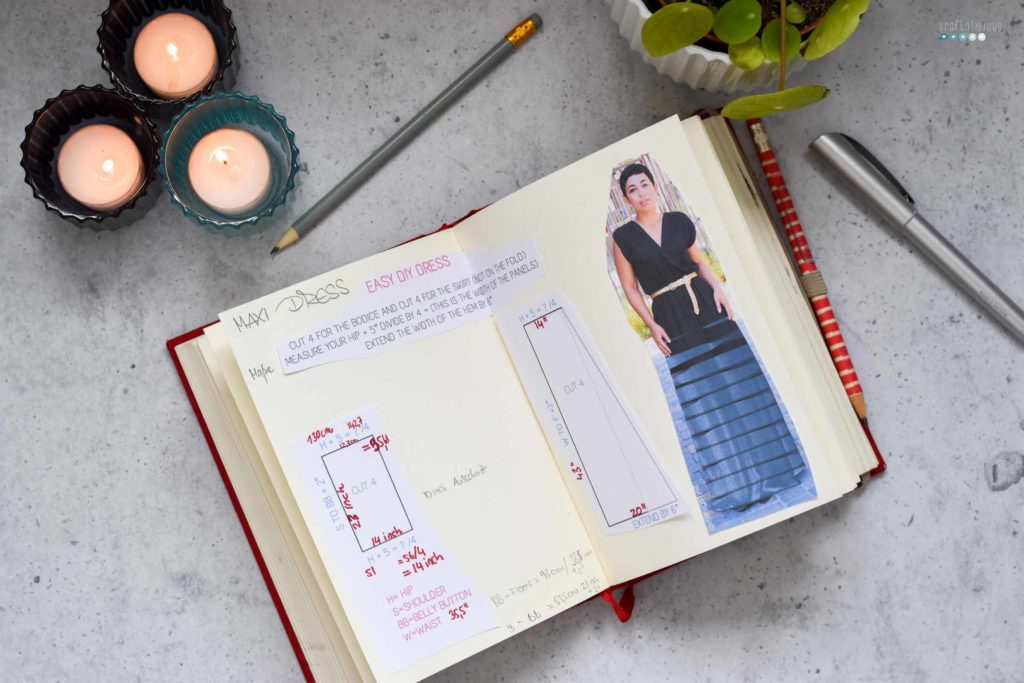 craftalicious
MAXI DRESS
EASY DIY DRESS
CUT 4 FOR THE BODICE AND CUT 4 FOR THE SKIRT (NOT ON THE FOLD)
MEASURE YOUR HIP + 5" DIVIDE BY 4 = (THIS IS THE WIDTH OF THE PANELS)
EXTEND THE WIDTH OF THE HEM BY 6"
Maße
130cm
H + 5 = ?/4
CUT 4
S TO BB + 2"
23 inch
14 inch
H + 5 = ?/4
51
=56/4
=14 inch
H= HIP
S=SHOULDER
BB=BELLY BUTTON
W=WAIST
35,5"
10 inch Ausschnitt
BB - Floor = 98cm/
S - BB = 53,5cm
H + 5 = ?/4
14"
CUT 4
W TO F + 2"
43"
20"
EXTEND BY 6"